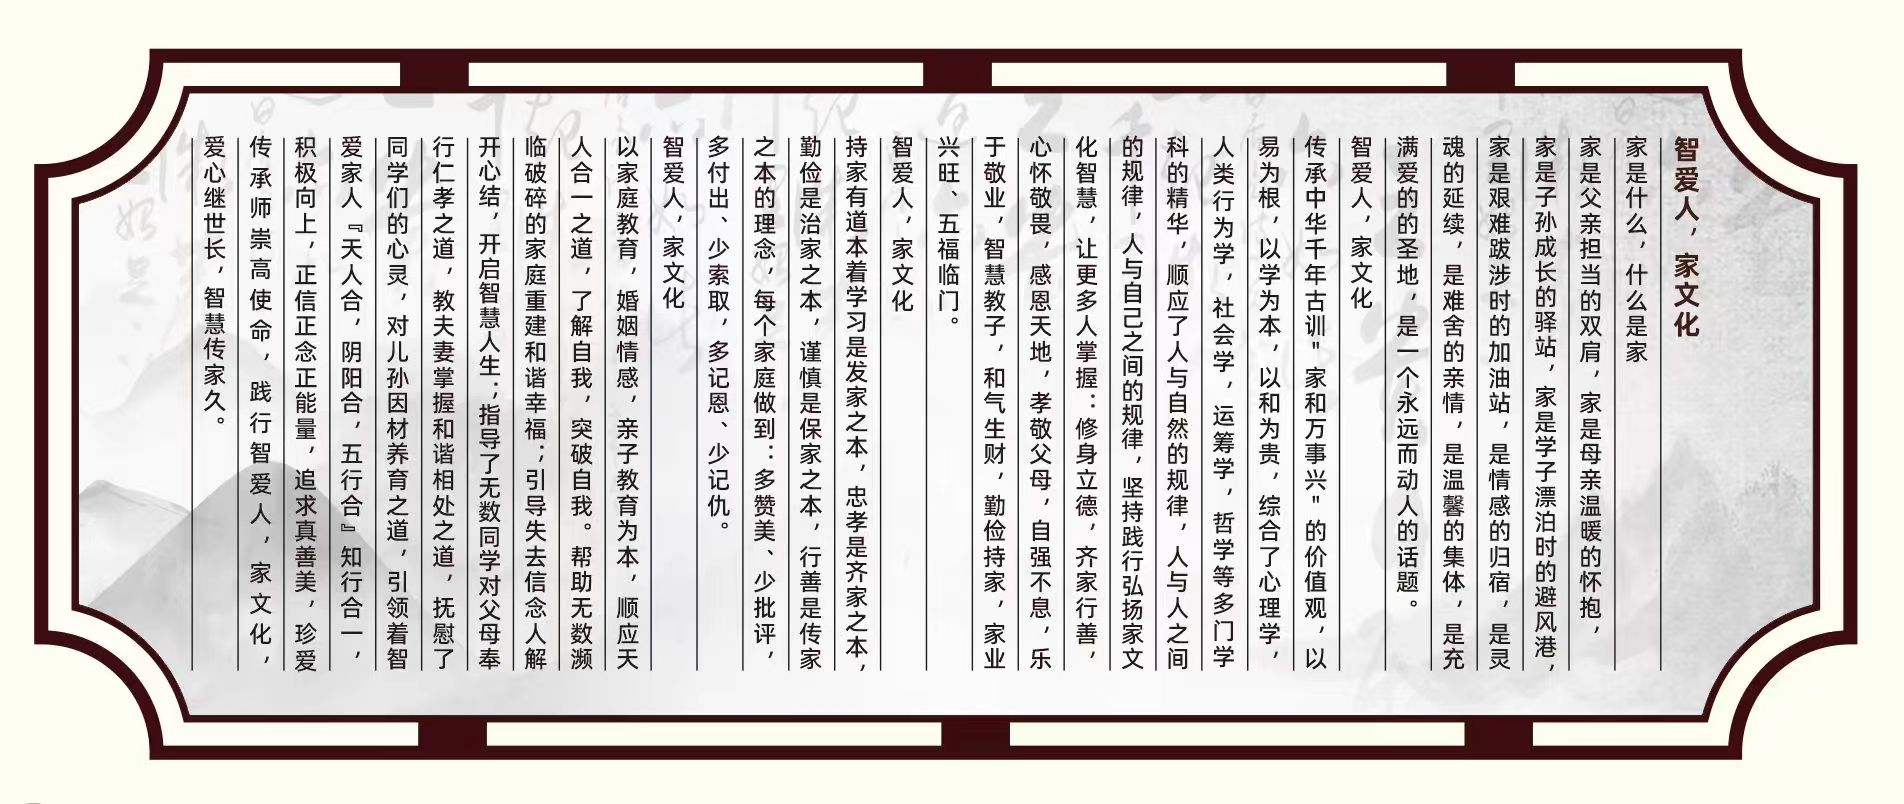 智爱人，家文化
家是什么，什么是家
家是父亲担当的双肩，家是母亲温暖的怀抱，
家是子孙成长的驿站，家是学子漂泊时的避风港，
家是艰难跋涉时的加油站，是情感的归宿，是灵
魂的延续，是难舍的亲情，是温馨的集体，是充
满爱的的圣地，是一个永远而动人的话题。
智爱人，家文化
传承中华千年古训"家和万事兴"的价值观，以
易为根，以学为本，以和为贵，综合了心理学，
人类行为学，社会学，运筹学，哲学等多门学
科的精华，顺应了人与自然的规律，人与人之间
的规律，人与自己之间的规律，坚持践行弘扬家文
化智慧，让更多人掌握：修身立德，齐家行善，
心怀敬畏，感恩天地，孝敬父母，自强不息，乐
于敬业，智慧教子，和气生财，勤俭持家，家业
兴旺、五福临门。
智爱人，家文化
持家有道本着学习是发家之本，忠孝是齐家之本，
勤俭是治家之本，谨慎是保家之本，行善是传家
之本的理念，每个家庭做到：多赞美、少批评，
多付出、少索取，多记恩、少记仇。
智爱人，家文化
以家庭教育，婚姻情感，亲子教育为本，顺应天
人合一之道，了解自我，突破自我。帮助无数濒
临破碎的家庭重建和谐幸福；引导失去信念人解
开心结，开启智慧人生；指导了无数同学对父母奉
行仁孝之道，教夫妻掌握和谐相处之道，抚慰了
同学们的心灵，对儿孙因材养育之道，引领着智
爱家人『天人合，阴阳合，五行合』知行合一，
积极向上，正信正念正能量，追求真善美，珍爱
传承师崇高使命，践行智爱人，家文化，
爱心继世长，智慧传家久。